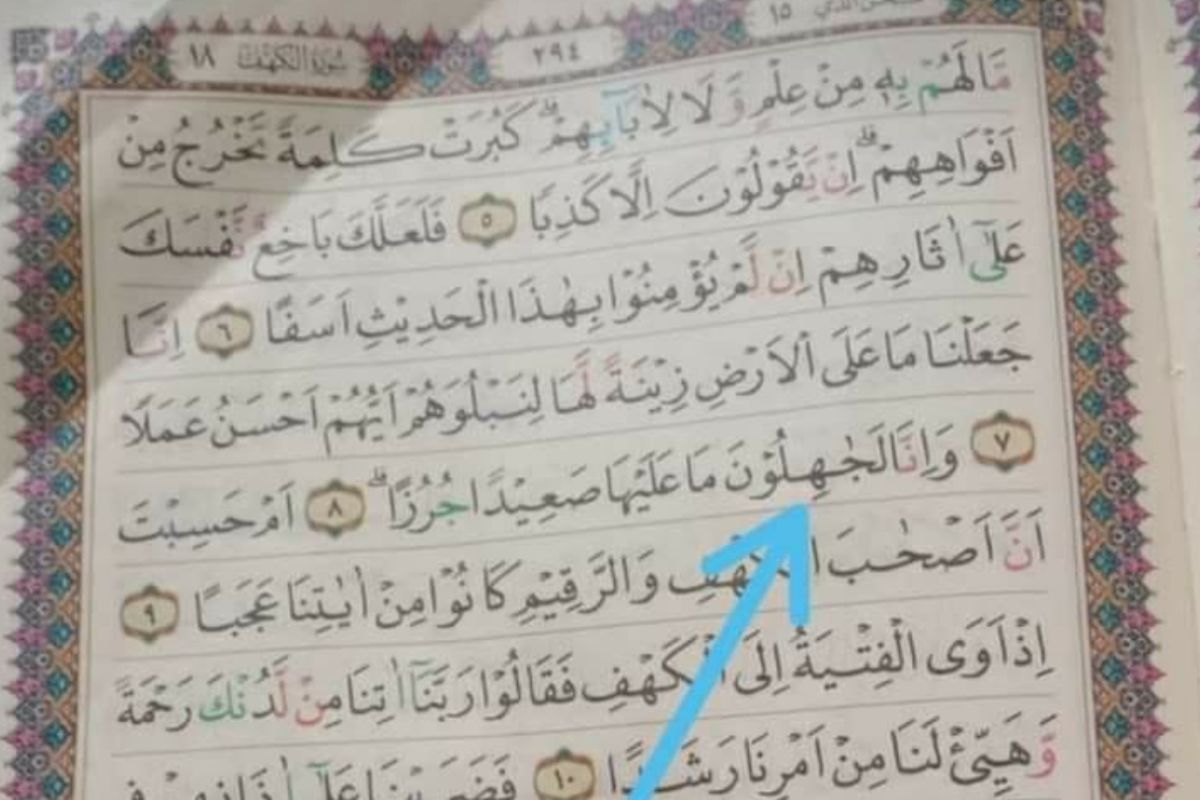 الذي ١٥
٢٩٤
سُورَةُ الْكَهْفِ ١٨
مَّا لَهُمْ بِهٖ مِنْ عِلْمٍ وَّلَا لِاٰبَاۤىِٕهِمْۗ كَبُرَتْ كَلِمَةً تَخْرُجُ مِنْ
اَفْوَاهِهِمْۗ اِنْ يَّقُوْلُوْنَ اِلَّا كَذِبًا ٥ فَلَعَلَّكَ بَاخِعٌ نَّفْسَكَ
عَلٰٓى اٰثَارِهِمْ اِنْ لَّمْ يُؤْمِنُوْا بِهٰذَا الْحَدِيْثِ اَسَفًا ٦ اِنَّا
جَعَلْنَا مَا عَلَى الْاَرْضِ زِيْنَةً لَّهَا لِنَبْلُوَهُمْ اَيُّهُمْ اَحْسَنُ عَمَلًا
٧ وَاِنَّا لَجٰهِلُوْنَ مَا عَلَيْهَا صَعِيْدًا جُرُزًاۗ ٨ اَمْ حَسِبْتَ
اَنَّ اَصْحٰبَ الْكَهْفِ وَالرَّقِيْمِ كَانُوْا مِنْ اٰيٰتِنَا عَجَبًا ٩
اِذْ اَوَى الْفِتْيَةُ اِلَى الْكَهْفِ فَقَالُوْا رَبَّنَآ اٰتِنَا مِنْ لَّدُنْكَ رَحْمَةً
وَّهَيِّئْ لَنَا مِنْ اَمْرِنَا رَشَدًا ١٠ فَضَرَبْنَا عَلٰٓى اٰذَانِهِمْ فِى